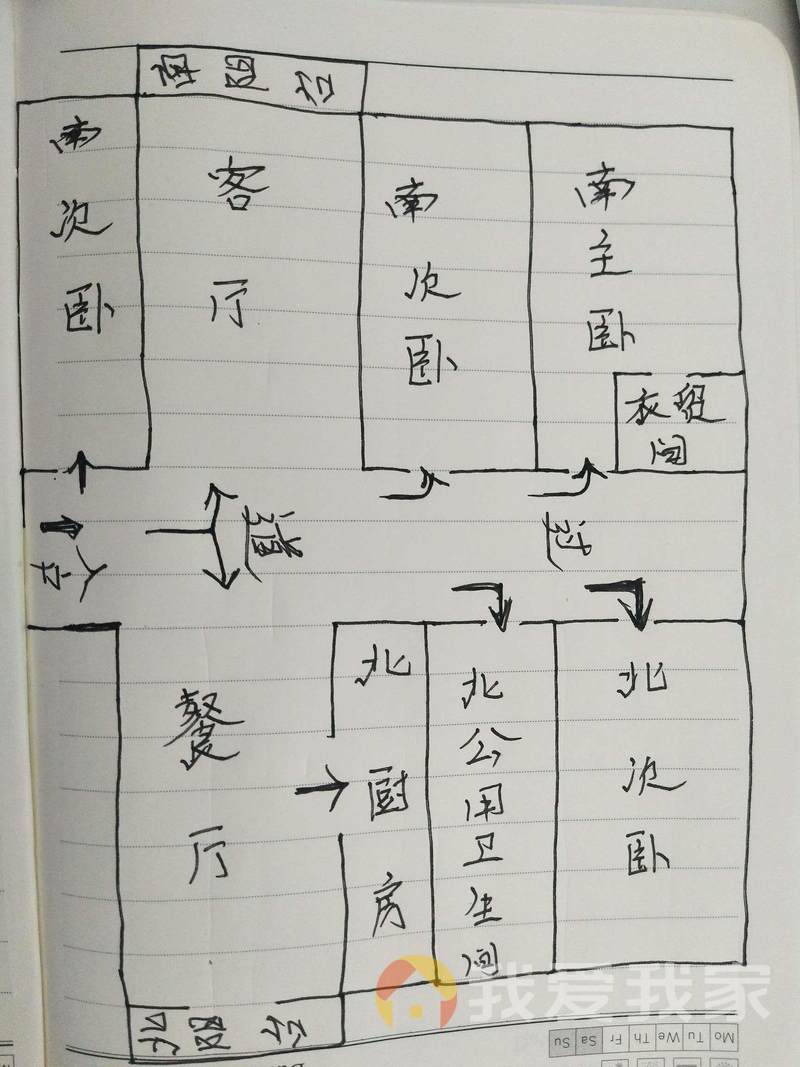 南阳台
南次卧
客厅
南次卧
南主卧
衣帽间
入户
过道
餐厅
北厨房
北公用卫生间
北次卧
北阳台
我爱我家
Mo Tu We Th Fr Sa Su